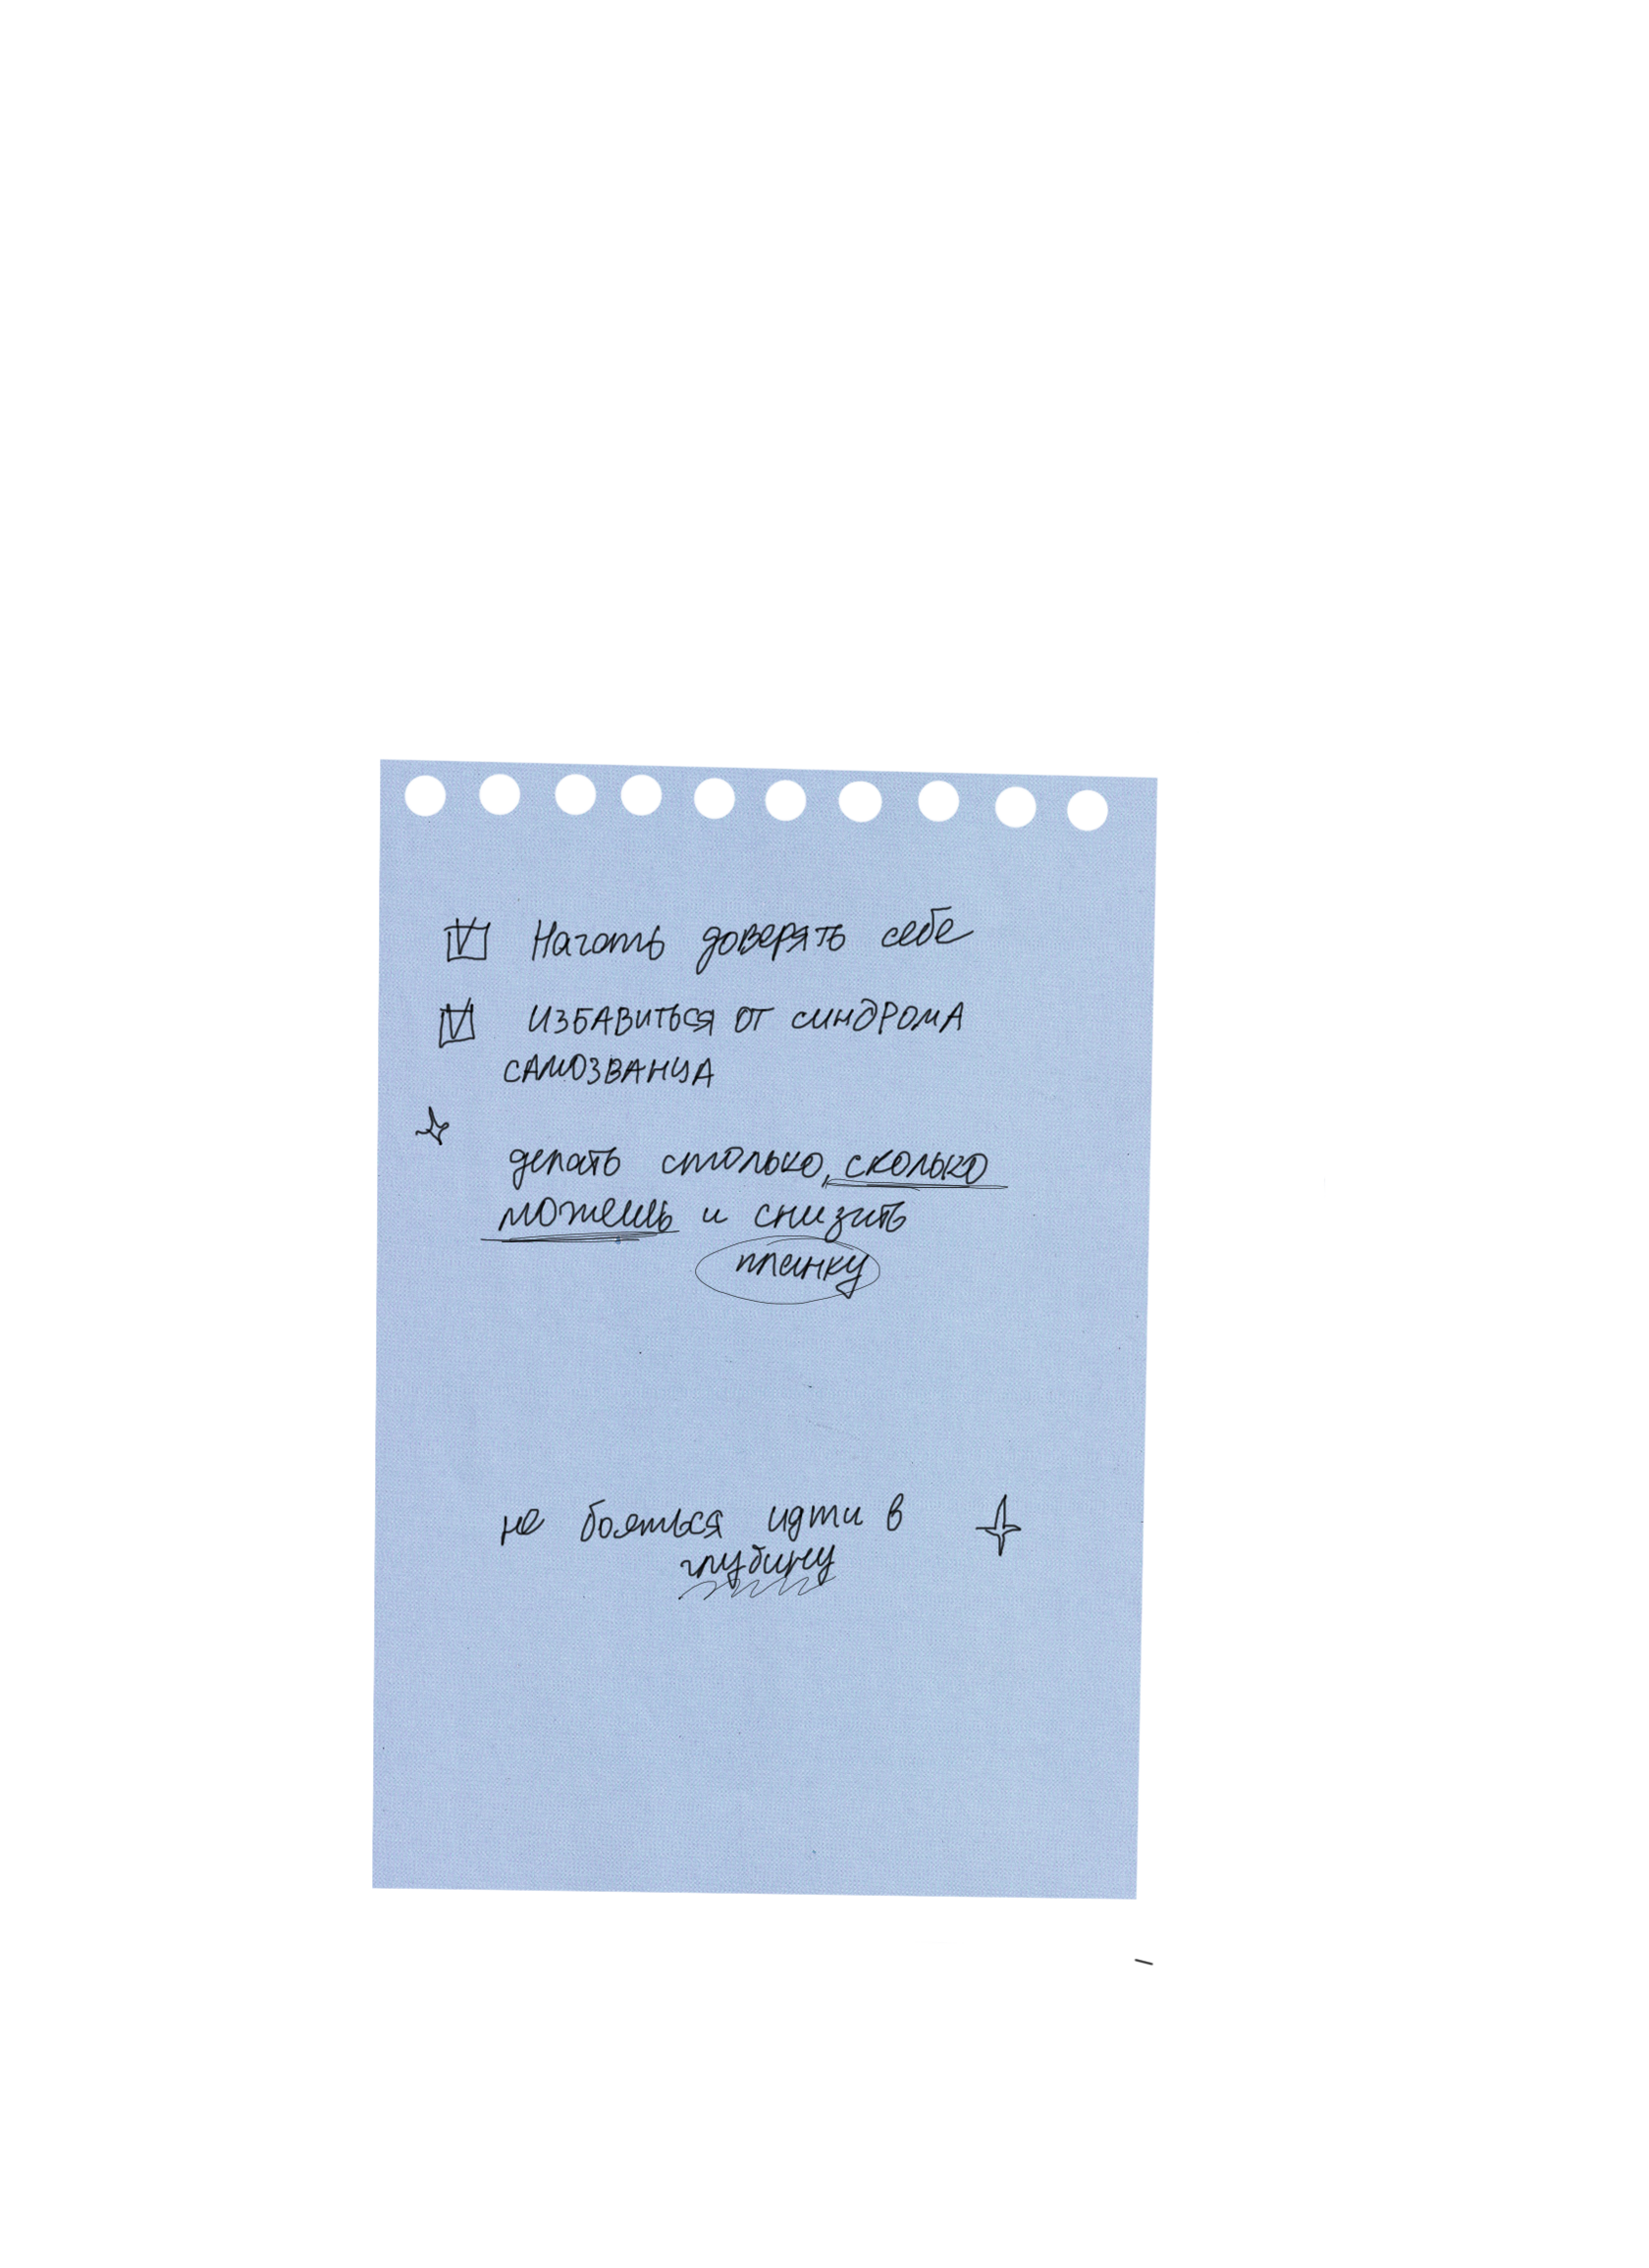 Начать доверять себе
ИЗБАВИТЬСЯ ОТ СИНДРОМА
САМОЗВАНЦА
делать столько, сколько
можешь и снизить
планку
не бояться идти в
глубину